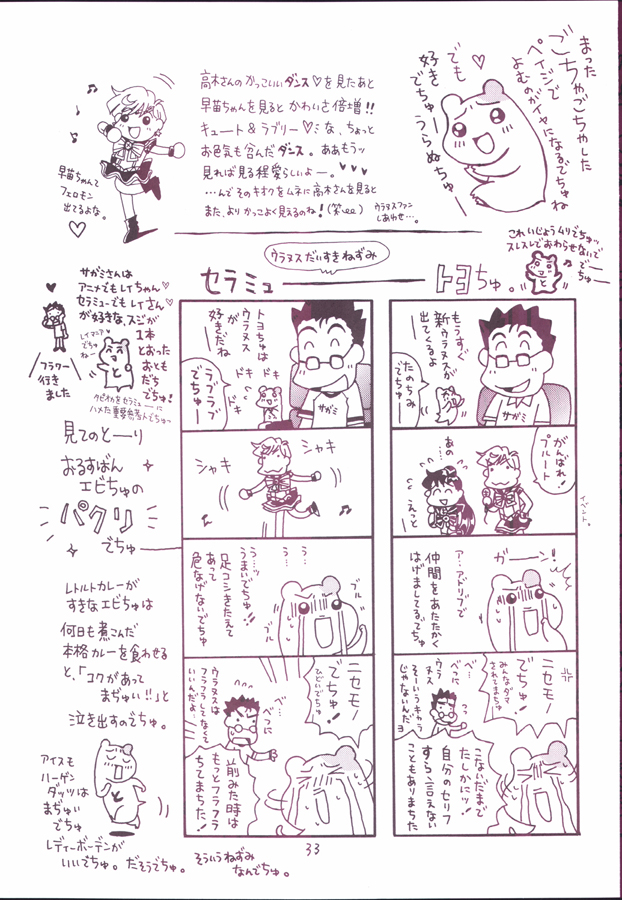 まった
ごちゃごちゃした
ペイジで
よむのがイヤになるでちゅね
でも♡
好きでちゅー
うらぬちゅー
高木さんのかっこいいダンス♡を見たあと
早苗ちゃんを見ると かわいさ倍増!!
キュート&ラブリー♡な、ちょっと
お色気も含んだダンス。ああもうッ
見れば見る程愛らしいよー。♥♥♥
…んでそのキオクをムネに高木さんを見ると
また、よりかっこよく見えるのね!(笑)
ウラヌスファン
しあわせ…。
早苗ちゃんて
フェロモン
出てるよな。
♡
これいじょうムリでちゅッ
スレスレでおわらせないで
でーちゅー
ウラヌスだいすきねずみ
セラミュー
トヨちゅ。
もうすぐ
新ウラヌスが
出てくるよ
たのちみ
でちゅー
サガミ
がんばれ!
プルート
イベント。
あの
えっと
ガーン!
ア…アドリブで
仲間をあたたかく
はげましてるでちゅ
ニセモノ
でちゅ!
みんなダマ
されてまちゅ
べ…
べつに
ウラヌス
そーいうキャラ
じゃないんだヨ
こないだまで
たしかにッ!
自分のセリフ
すら言えない
こともありまちた
トヨちゅは
ウラヌス
が
好きだね
ドキ
ドキ
ドキ
ラブラブ
でちゅー
サガミ
シャキ
シャキ
う…
う…ッ
うまいでちゅ!!
足コシきたえて
あって
危なげないでちゅ
ブル
ブル
ニセモノ
でちゅ!
ひどいでちゅ
べ…
べつに
ウラヌスは
フラフラしてなくて
いいんだよ…
前みた時は
もっとフラフラ
ちてまちた!
サガミさんは
アニメでもレイちゃん♡
セラミューでもレイさん♡
が好きな、スジが
1本
とおった
おとも
だち
でちゅ!
レイマニア
でちゅ
ねー
フラワー
行き
ました
クビわをセラミューに
ハメた重要参考人でちゅっ
見てのとーり
おるすばん
エビちゅの
パクリ
でちゅ
レトルトカレーが
すきなエビちゅは
何日も煮こんだ
本格カレーを食わせる
と、「コクがあって
まぢゅい!!」と
泣き出すのでちゅ。
アイスも
ハーゲン
ダッツは
まぢゅい
でちゅ
レディーボーデンが
いいでちゅ。だそうでちゅ。
そういうねずみ
なんでちゅ。
33